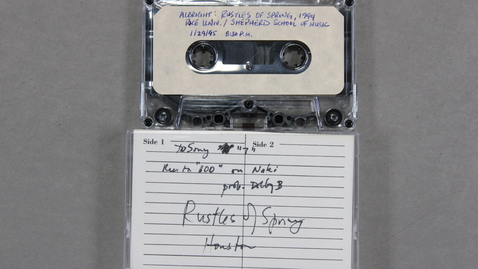 ALBRIGHT: RUSTLES OF SPRING, 1994
RICE UNIV. / SHEPHERD SCHOOL OF MUSIC
1/29/95 8:30 P.M.
Side 1 Side 2
to Sony "7"
Run to "600" on Naki
prob. Dolby B
Rustles of Spring
Houston